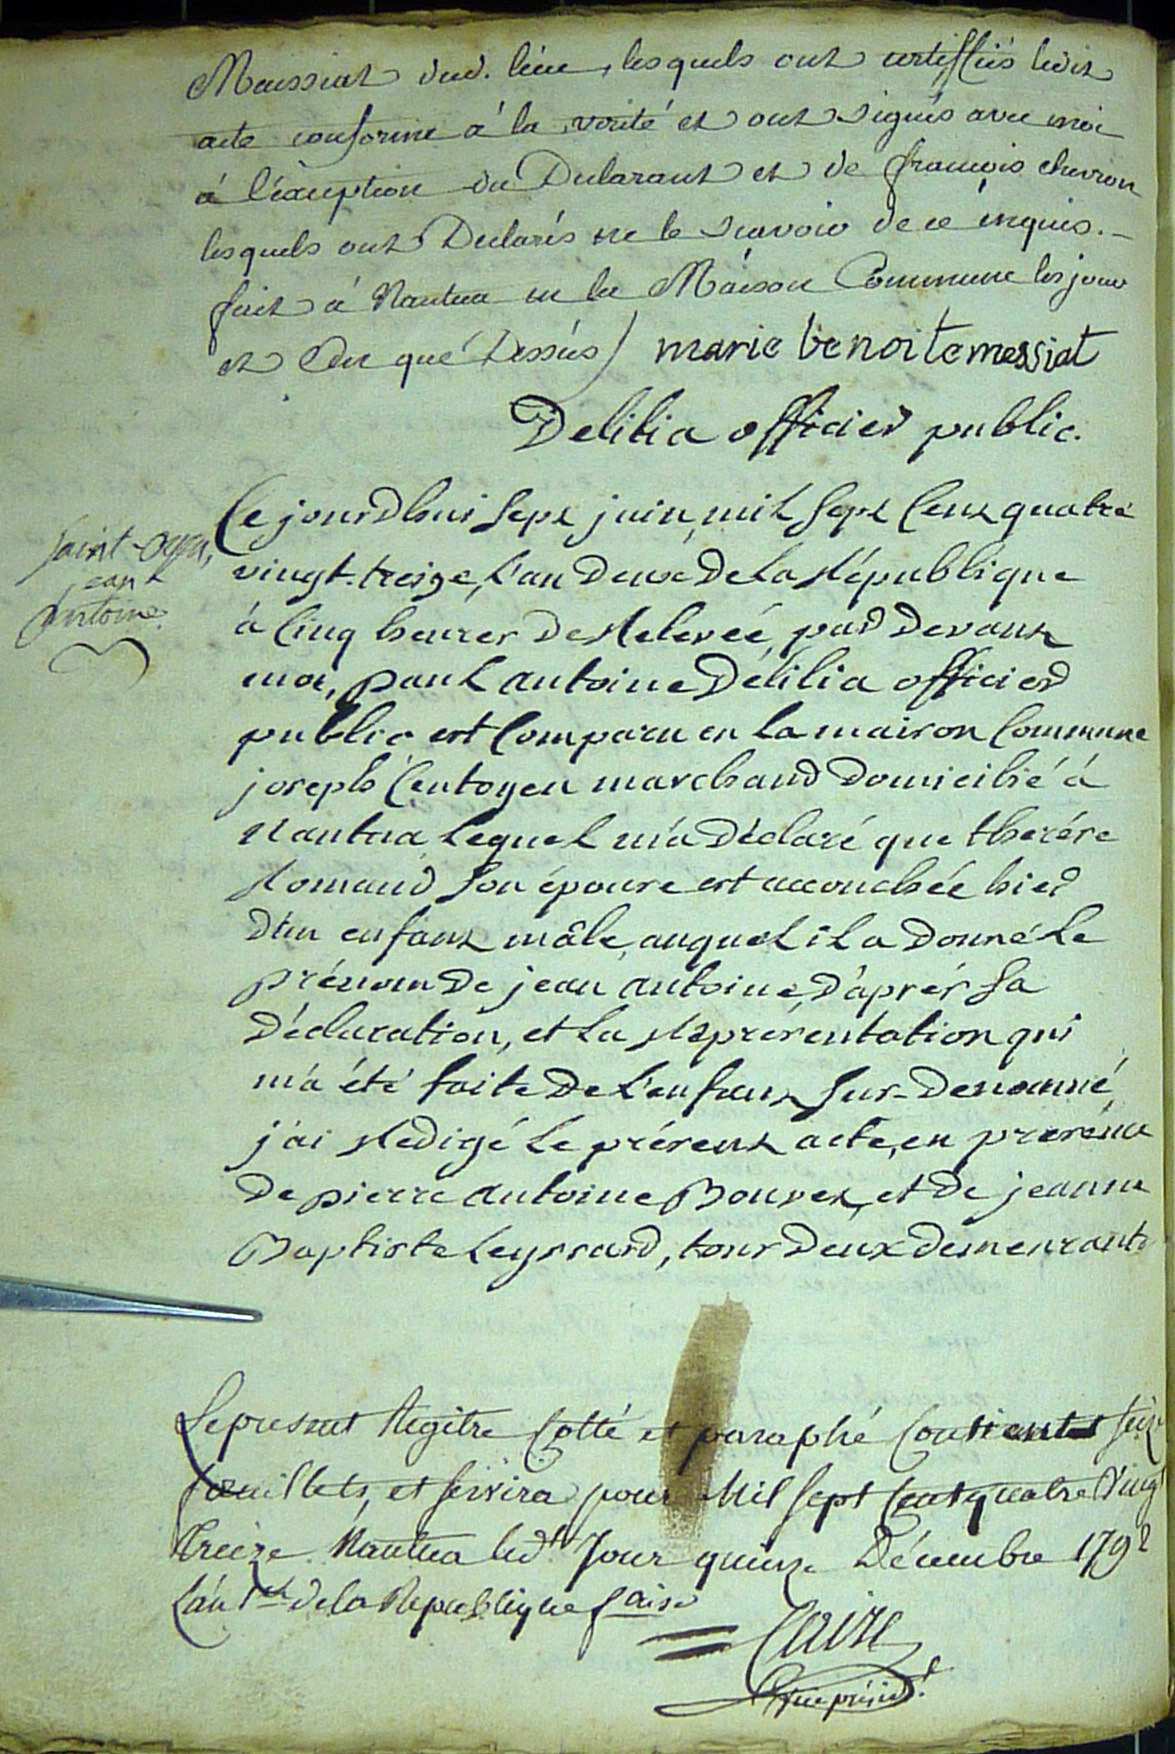 Maissiat dud. lieu, lesquels ont certiffiés ledit
acte conforme à la vérité et ont signés avec moi
à l'éxception du Declarant et de françois chevron
lesquels ont Declarés ne le scavoir de ce enquis.
fait à Nantua en la Maison Commune les jour
et an que Dessus / marie benoite messiat
Delilia officier public.
Ce jourdhui sept juin, mil sept cent quatre
vingt-treize, l'an Deux De La République
à cinq heures De Relevée, par Devant
moi, paul antoine Délilia officier
public est Comparu en La maison Commune
joseph Centoyen marchand Domicilié à
Nantua Lequel m'a Déclaré que thérése
Romand Son épouse est accouchée hier
D'un enfant mâle, auquel il a Donné Le
prénom De jean antoine, D'après Sa
Déclaration, et La Représentation qui
m'a été faite De L'enfant Sus-Denommé,
j'ai Redigé Le présent acte, en présence
De pierre antoine Bouvet, et De jeanne
Baptiste Leyssard, tous Deux Demeurants
Saint-oyen,
jean
Antoine.
Le present Regitre Cotté et paraphé Contient seize
feuillets, et servira pour Mil sept Cent quatre Vingt
treize. Nantua led.t Jour quinze Décembre 1792
L'an 1er de la République fçaise
vice présid.t